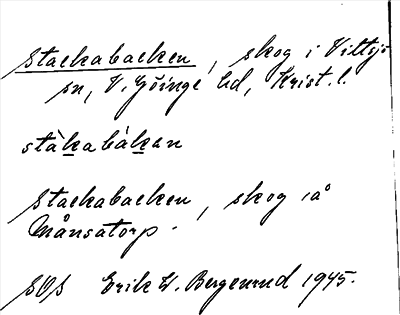 Stackabacken, skog i Vittsjö
sn, V. Göinge hd, Krist. l.
stàkabàkan
Stackabacken, skog på
Månsatorp.
SOS Erik W. Bergenrud 1945.